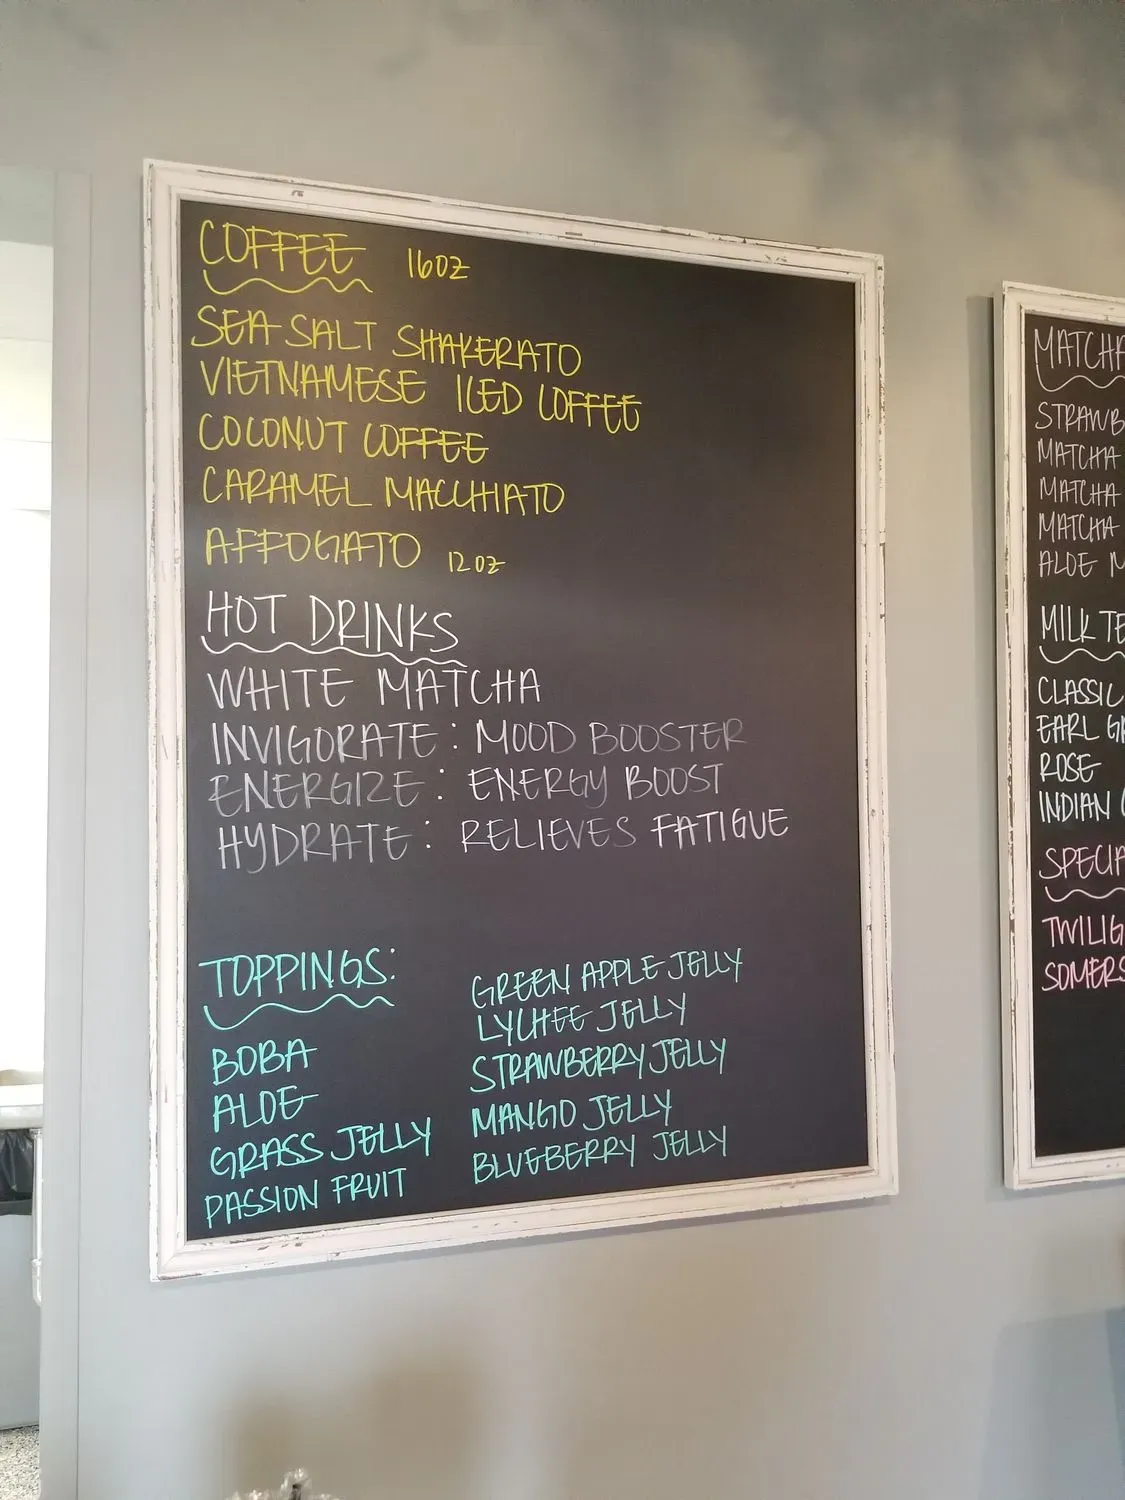 COFFEE 16OZ
SEA SALT SHAKERATO
VIETNAMESE ICED COFFEE
COCONUT COFFEE
CARAMEL MACCHIATO
AFFOGATO 12OZ
HOT DRINKS
WHITE MATCHA
INVIGORATE: MOOD BOOSTER
ENERGIZE: ENERGY BOOST
HYDRATE: RELIEVES FATIGUE
TOPPINGS:
BOBA
ALOE
GRASS JELLY
PASSION FRUIT
GREEN APPLE JELLY
LYCHEE JELLY
STRAWBERRY JELLY
MANGO JELLY
BLUEBERRY JELLY
MATCHA
MATCHA
MATCHA
MATCHA
ALOE
MILK
CLASSIC
EARL
ROSE
INDIAN